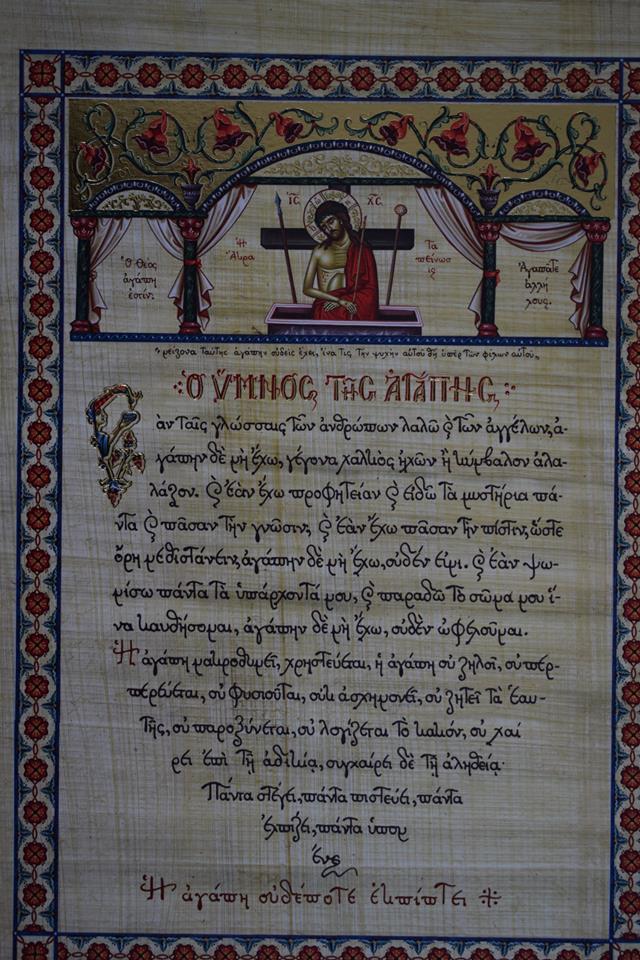 ΙC ΧC
Ὁ Θεὸς
ἀγάπη
ἐστίν.
Ἡ
Ἄκρα
Τα
πείνωσ
ις
Ἀγαπᾶτε
ἀλλή
λους.
"μείζονα ταύτης ἀγάπην οὐδεὶς ἔχει, ἵνα τις τὴν ψυχὴν αὐτοῦ θῇ ὑπὲρ τῶν φίλων αὐτοῦ"
Ὁ ὝΜΝΟΣ ΤΗΣ ἈΓΆΠΗΣ
Ἐὰν ταῖς γλώσσαις τῶν ἀνθρώπων λαλῶ ϗ τῶν ἀγγέλων, ἀ-
γάπην δὲ μὴ ἔχω, γέγονα χαλκὸς ἠχῶν ἢ κύμβαλον ἀλα-
λάζον. ϗ ἐὰν ἔχω προφητείαν ϗ εἰδῶ τὰ μυστήρια πά-
ντα ϗ πᾶσαν τὴν γνῶσιν, ϗ ἐὰν ἔχω πᾶσαν τὴν πίστιν, ὥστε
ὄρη μεθιστάνειν, ἀγάπην δὲ μὴ ἔχω, οὐδέν εἰμι. ϗ ἐὰν ψω-
μίσω πάντα τὰ ὑπάρχοντά μου, ϗ παραδῶ τὸ σῶμα μου ἵ-
να καυθήσομαι, ἀγάπην δὲ μὴ ἔχω, οὐδὲν ὠφελοῦμαι.
Ἡ ἀγάπη μακροθυμεῖ, χρηστεύεται, ἡ ἀγάπη οὐ ζηλοῖ, οὐ περ-
περεύεται, οὐ φυσιοῦται, οὐκ ἀσχημονεῖ, οὐ ζητεῖ τὰ ἑαυ-
τῆς, οὐ παροξύνεται, οὐ λογίζεται τὸ κακόν, οὐ χαί
ρει ἐπὶ τῇ ἀδικίᾳ, συγχαίρει δὲ τῇ ἀληθείᾳ·
Πάντα στέγει, πάντα πιστεύει, πάντα
ἐλπίζει, πάντα ὑπομ
ένει
Ἡ ἀγάπη οὐδέποτε ἐκπίπτει